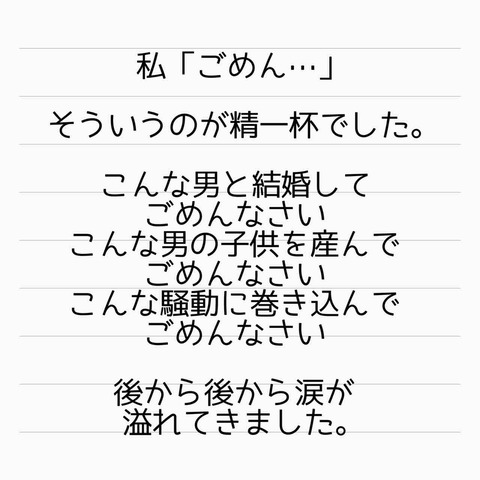 私「ごめん…」
そういうのが精一杯でした。
こんな男と結婚して
ごめんなさい
こんな男の子供を産んで
ごめんなさい
こんな騒動に巻き込んで
ごめんなさい
後から後から涙が
溢れてきました。